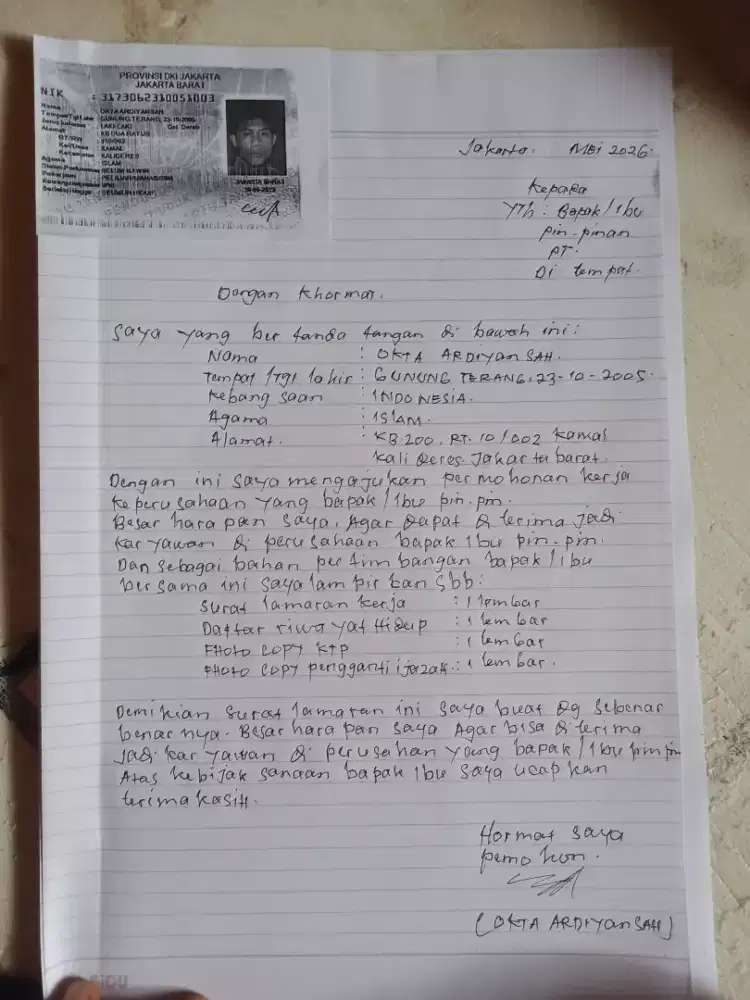 PROVINSI DKI JAKARTA
JAKARTA BARAT
NIK : 3173062310051003
Nama : OKTA ARDIYANSAH
Tempat/Tgl Lahir : GUNUNG TERANG, 23-10-2005
Jenis kelamin : LAKI-LAKI Gol. Darah :
Alamat : KB DUA RATUS
RT/RW : 010/002
Kel/Desa : KAMAL
Kecamatan : KALIDERES
Agama : ISLAM
Status Perkawinan : BELUM KAWIN
Pekerjaan : PELAJAR/MAHASISWA
Kewarganegaraan : WNI
Berlaku Hingga : SEUMUR HIDUP
JAKARTA BARAT
Jakarta. MEI 2026.
Kepada
YTH : Bapak / Ibu
pin-pinan
PT.
Di tempat.
Dengan Khormat.
Saya yang ber tanda tangan di bawah ini :
Nama : OKTA ARDIYAN SAH.
Tempat / Tgl lahir : GUNUNG TERANG, 23-10-2005.
Kebang saan : INDONESIA.
Agama : ISLAM.
Alamat. : KB 200. RT. 10/002 Kamal
Kali Deres. Jakarta barat.
Dengan ini saya mengajukan per mohonan kerja
Keperusahaan yang bapak / Ibu pin.pin.
Besar hara pan saya. Agar Dapat di terima jadi
kar yawan di perusahaan bapak Ibu pin-pin.
Dan sebagai bahan per tim bangan bapak / Ibu
ber sama ini saya lam pir kan sbb :
Surat lamaran kerja : 1 lembar
Daftar riwa yat Hidup : 1 lem bar
FHOTO COPY KTP : 1 lem bar
PHOTO COPY pengganti ijazak. : 1 lem bar.
Demikian surat lamaran ini saya buat dg sebenar
benar nya. Besar hara pan saya Agar bisa di terima
Jadi kar yawan di perusahan yang bapak / Ibu pin pin
Atas kebijak sanaan bapak Ibu saya ucap kan
terima kasih.
Hormat saya
pemo hon.
(OKTA ARDIYAN SAH)
SIDU